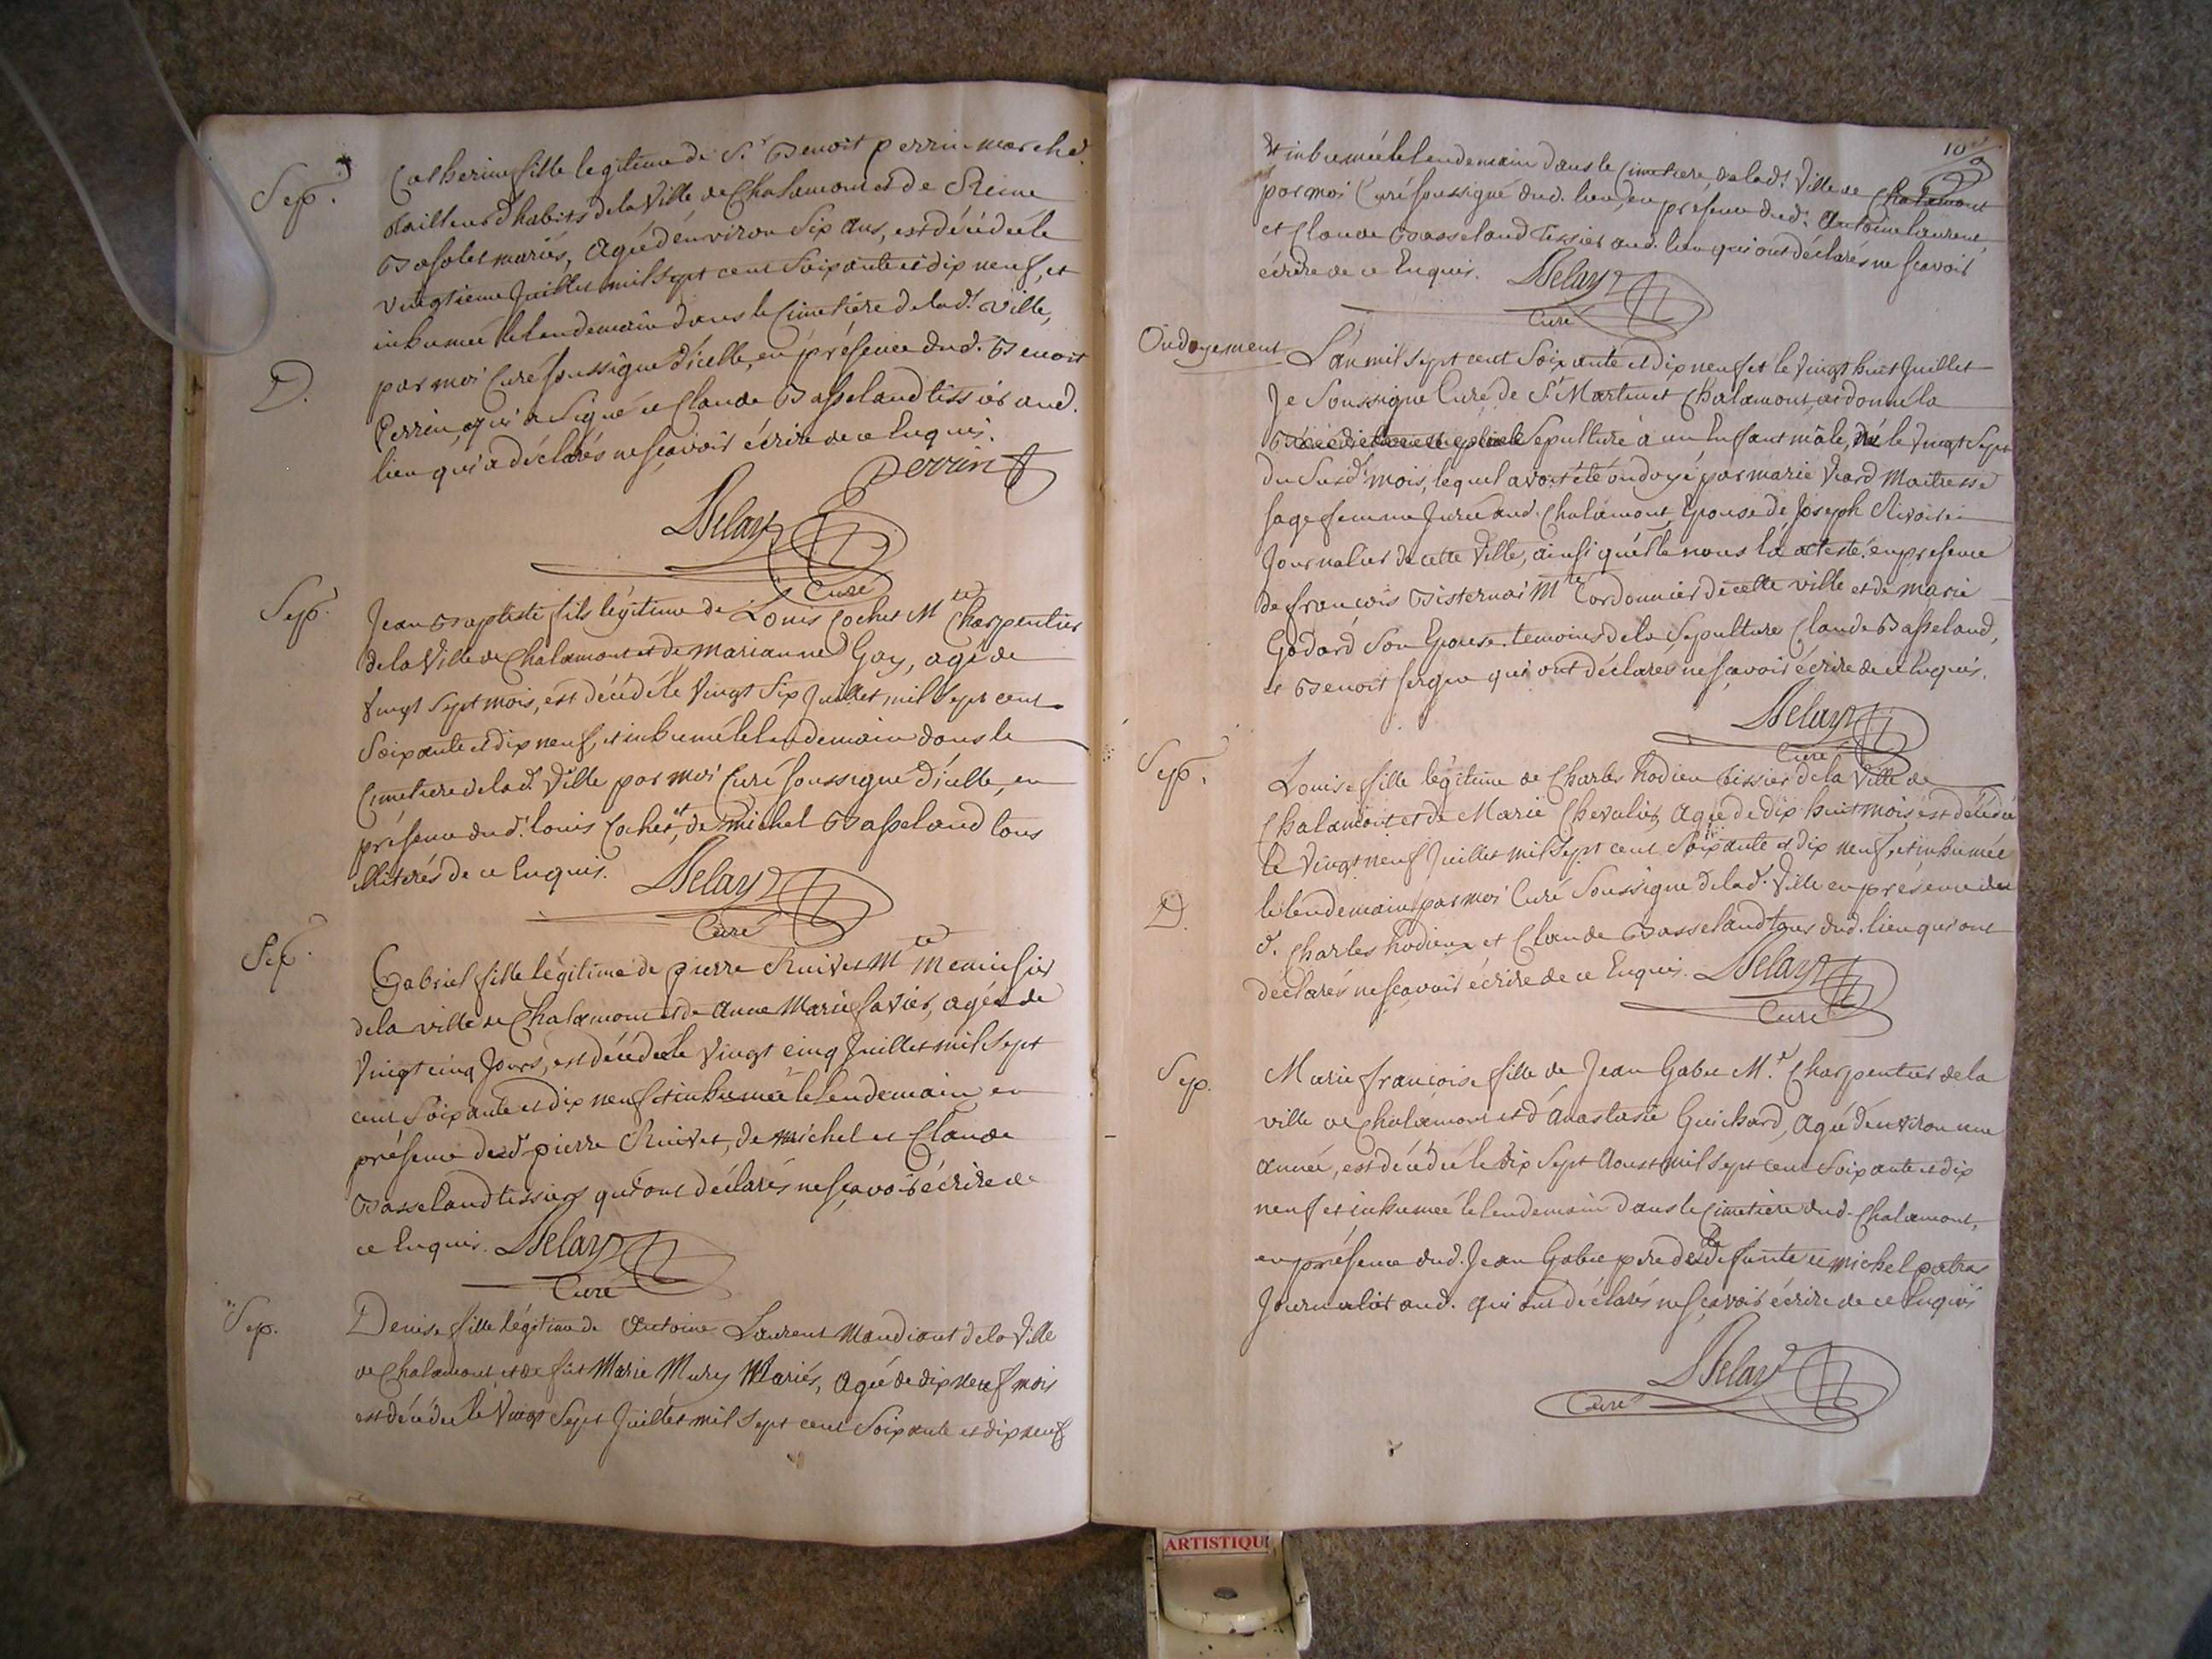 Sep.
Catherine fille legitime de Sr. Benoit perrin march.d
tailleur d'habits de la Ville de Chalamont et de Reine
mariés, agée d'environ Six ans, est décédée le
vingtieme Juillet mil sept cent Soixante et dix neuf, et
inhumée le lendemain dans le Cimetière de lad.t ville,
D.
par moi Curé soussigné d'icelle, en présence dud. Benoit
Perrin qui a Signé et Claude Basseland tissier aud.
lieu qui a déclarés ne sçavoir écrire de ce Enquis.
Perrin
Delay
Curé
Sep.
Jean Baptiste fils légitime de Louis Cochet M.tre Charpentier
de la Ville de Chalamont et de Marianne Goy, agé de
Vingt Sept mois, est décédé le Vingt Six Juillet mil Sept cent
Soixante et dix neuf, et inhumé le lendemain dans le
Cimetiere de lad. Ville par moi Curé soussigné d'icelle, en
présence dud.t louis Cochet, et de michel Basseland tous
illiterés de ce Enquis.
Delay
Curé
Sep.
Gabriel fille légitime de pierre Ruivet M.tre menuisier
de la ville de Chalamont et de anne Marie favier, agée de
Vingt cinq Jours, est décédée le Vingt cinq Juillet mil Sept
cent Soixante et dix neuf et inhumée le lendemain en
présence dud. pierre Ruivet, de michel et Claude
Basseland tissiers qui ont déclarés ne sçavoir écrire de
ce Enquis.
Delay
Curé
Sep.
Denise fille légitime de Antoine Laurent Mandiant de la Ville
de Chalamont, et de fût Marie Mury Mariés, agée de dix neuf mois
est décédée le Vingt Sept Juillet mil Sept cent Soixante et dix neuf
10
et inhumée le lendemain dans le Cimetiere de lad.t Ville de Chalamont
par moi Curé soussigné dud. lieu, en presence dud.t Antoine laurent,
et Claude Basseland tissier aud. lieu qui ont déclarés ne sçavoir
écrire de ce Enquis.
Delay
Curé
Ondoyement
L'an mil Sept cent Soixante et dix neuf et le Vingt huit Juillet
Je Soussigné Curé de St Martin et Chalamont, ai donné la
Sepulture à un Enfant mâle, né le Vingt Sept
du Susd.t mois, lequel avoit été ondoyé par marie Viard Maitresse
sage femme Jurée aud. Chalamont, Epouse de Joseph Rivoire
Journalier de cette Ville, ainsi qu'elle nous l'a attesté en presence
de françois Bisternai M.tre Cordonnier de cette ville et de marie
Godard Son Epouse. temoins de la Sepulture Claude Basseland,
et Benoit qui ont déclarés ne sçavoir écrire de ce Enquis.
Delay
Curé
Sep.
Louise fille légitime de Charles hodieu tissier de la Ville de
Chalamont et de Marie Chevalier, agée de dix huit mois, est décédée
le Vingt neuf Juillet mil Sept cent Soixante et dix neuf, et inhumée
D.
le lendemain par moi Curé Soussigné de lad. Ville en présence du
d. Charles hodieux et Claude Basseland tous dud. lieu qui ont
déclarés ne sçavoir écrire de ce Enquis.
Delay
Curé
Sep.
Marie françoise fille de Jean Gabu M.e Charpentier de la
ville de Chalamont et d'Anastasie Guichard, agée d'environ une
année, est décédée le dix Sept Aoust mil sept cent Soixante et dix
neuf et inhumée le lendemain dans le Cimetiere dud. Chalamont,
en présence dud. Jean Gabu pere de la de funte et michel patras
Journalier aud. qui ont déclarés ne sçavoir écrire de ce Enquis
Delay
Curé
ARTISTIQU